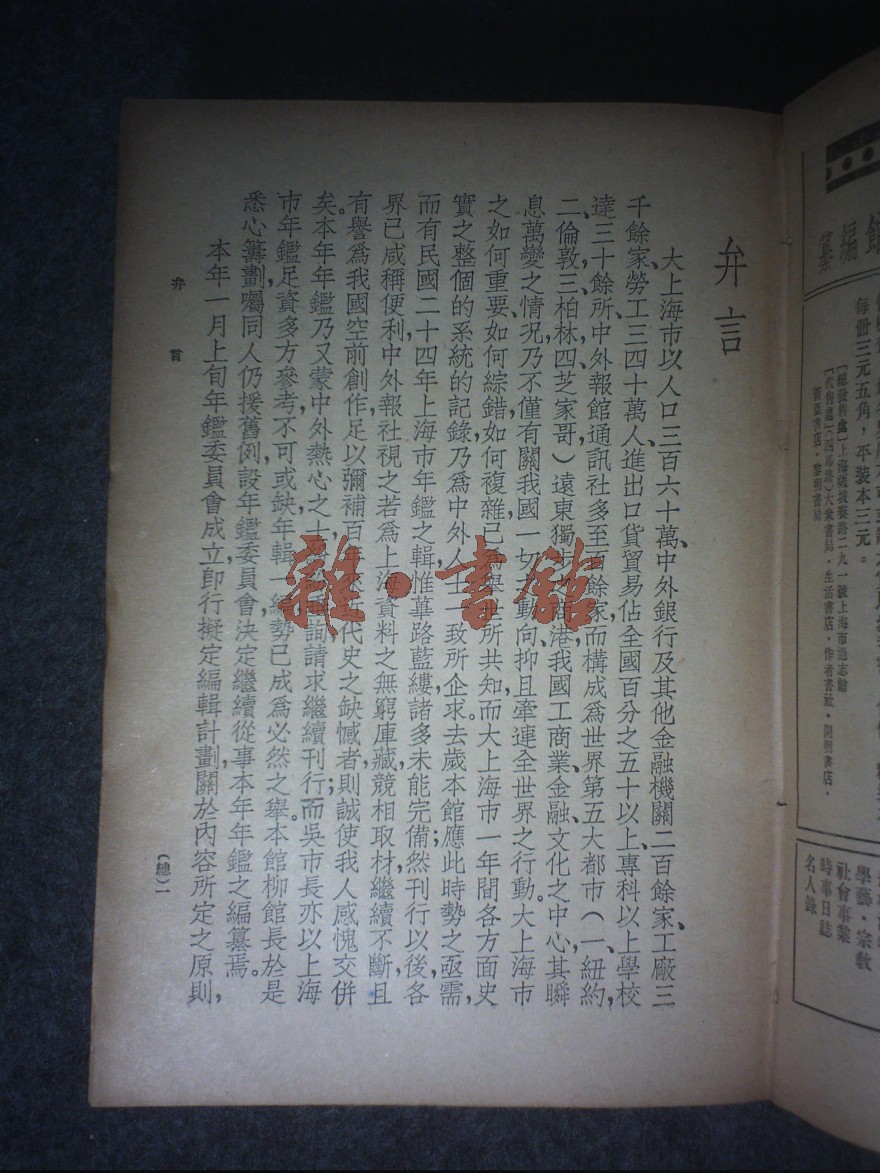 編纂
每冊三元五角，平裝本三元。
〔總發售處〕上海薩坡賽路二九一號上海市通志館
〔代售處〕（四馬路）大衆書局・生活書店・作者書社・開明書店・
新亞書店・黎明書局
學藝・宗教
社會事業
時事日誌
名人錄
弁言
大上海市以人口三百六十萬、中外銀行及其他金融機關二百餘家、工廠三
千餘家、勞工三四十萬人、進出口貨貿易佔全國百分之五十以上、專科以上學校
達三十餘所、中外報館通訊社多至百餘家、而構成爲世界第五大都市（一、紐約，
二、倫敦、三、柏林、四、芝家哥）遠東獨步之商港、我國工商業金融文化之中心。其瞬
息萬變之情況、乃不僅有關我國一切之動向、抑且牽連全世界之行動。大上海市
之如何重要、如何綜錯、如何複雜、已爲舉世所共知、而大上海市一年間各方面史
實之整個的系統的記錄、乃爲中外人士一致所企求。去歲本館應此時勢之亟需，
而有民國二十四年上海市年鑑之輯、惟篳路藍縷、諸多未能完備、然刊行以後，各
界已咸稱便利、中外報社視之若爲上海資料之無窮庫藏、競相取材、繼續不斷、且
有譽爲我國空前創作、足以彌補百年來近代史之缺憾者、則誠使我人感愧交併
矣。本年年鑑乃又蒙中外熱心之士紛紛函詢、請求繼續刊行；而吳市長亦以上海
市年鑑足資多方參考、不可或缺、年輯一編、勢已成爲必然之舉。本館柳館長於是
悉心籌劃、囑同人仍援舊例、設年鑑委員會、決定繼續從事本年年鑑之編纂焉。
本年一月上旬年鑑委員會成立、即行擬定編輯計劃、關於內容所定之原則，
弁言
（總）一
雜・書館